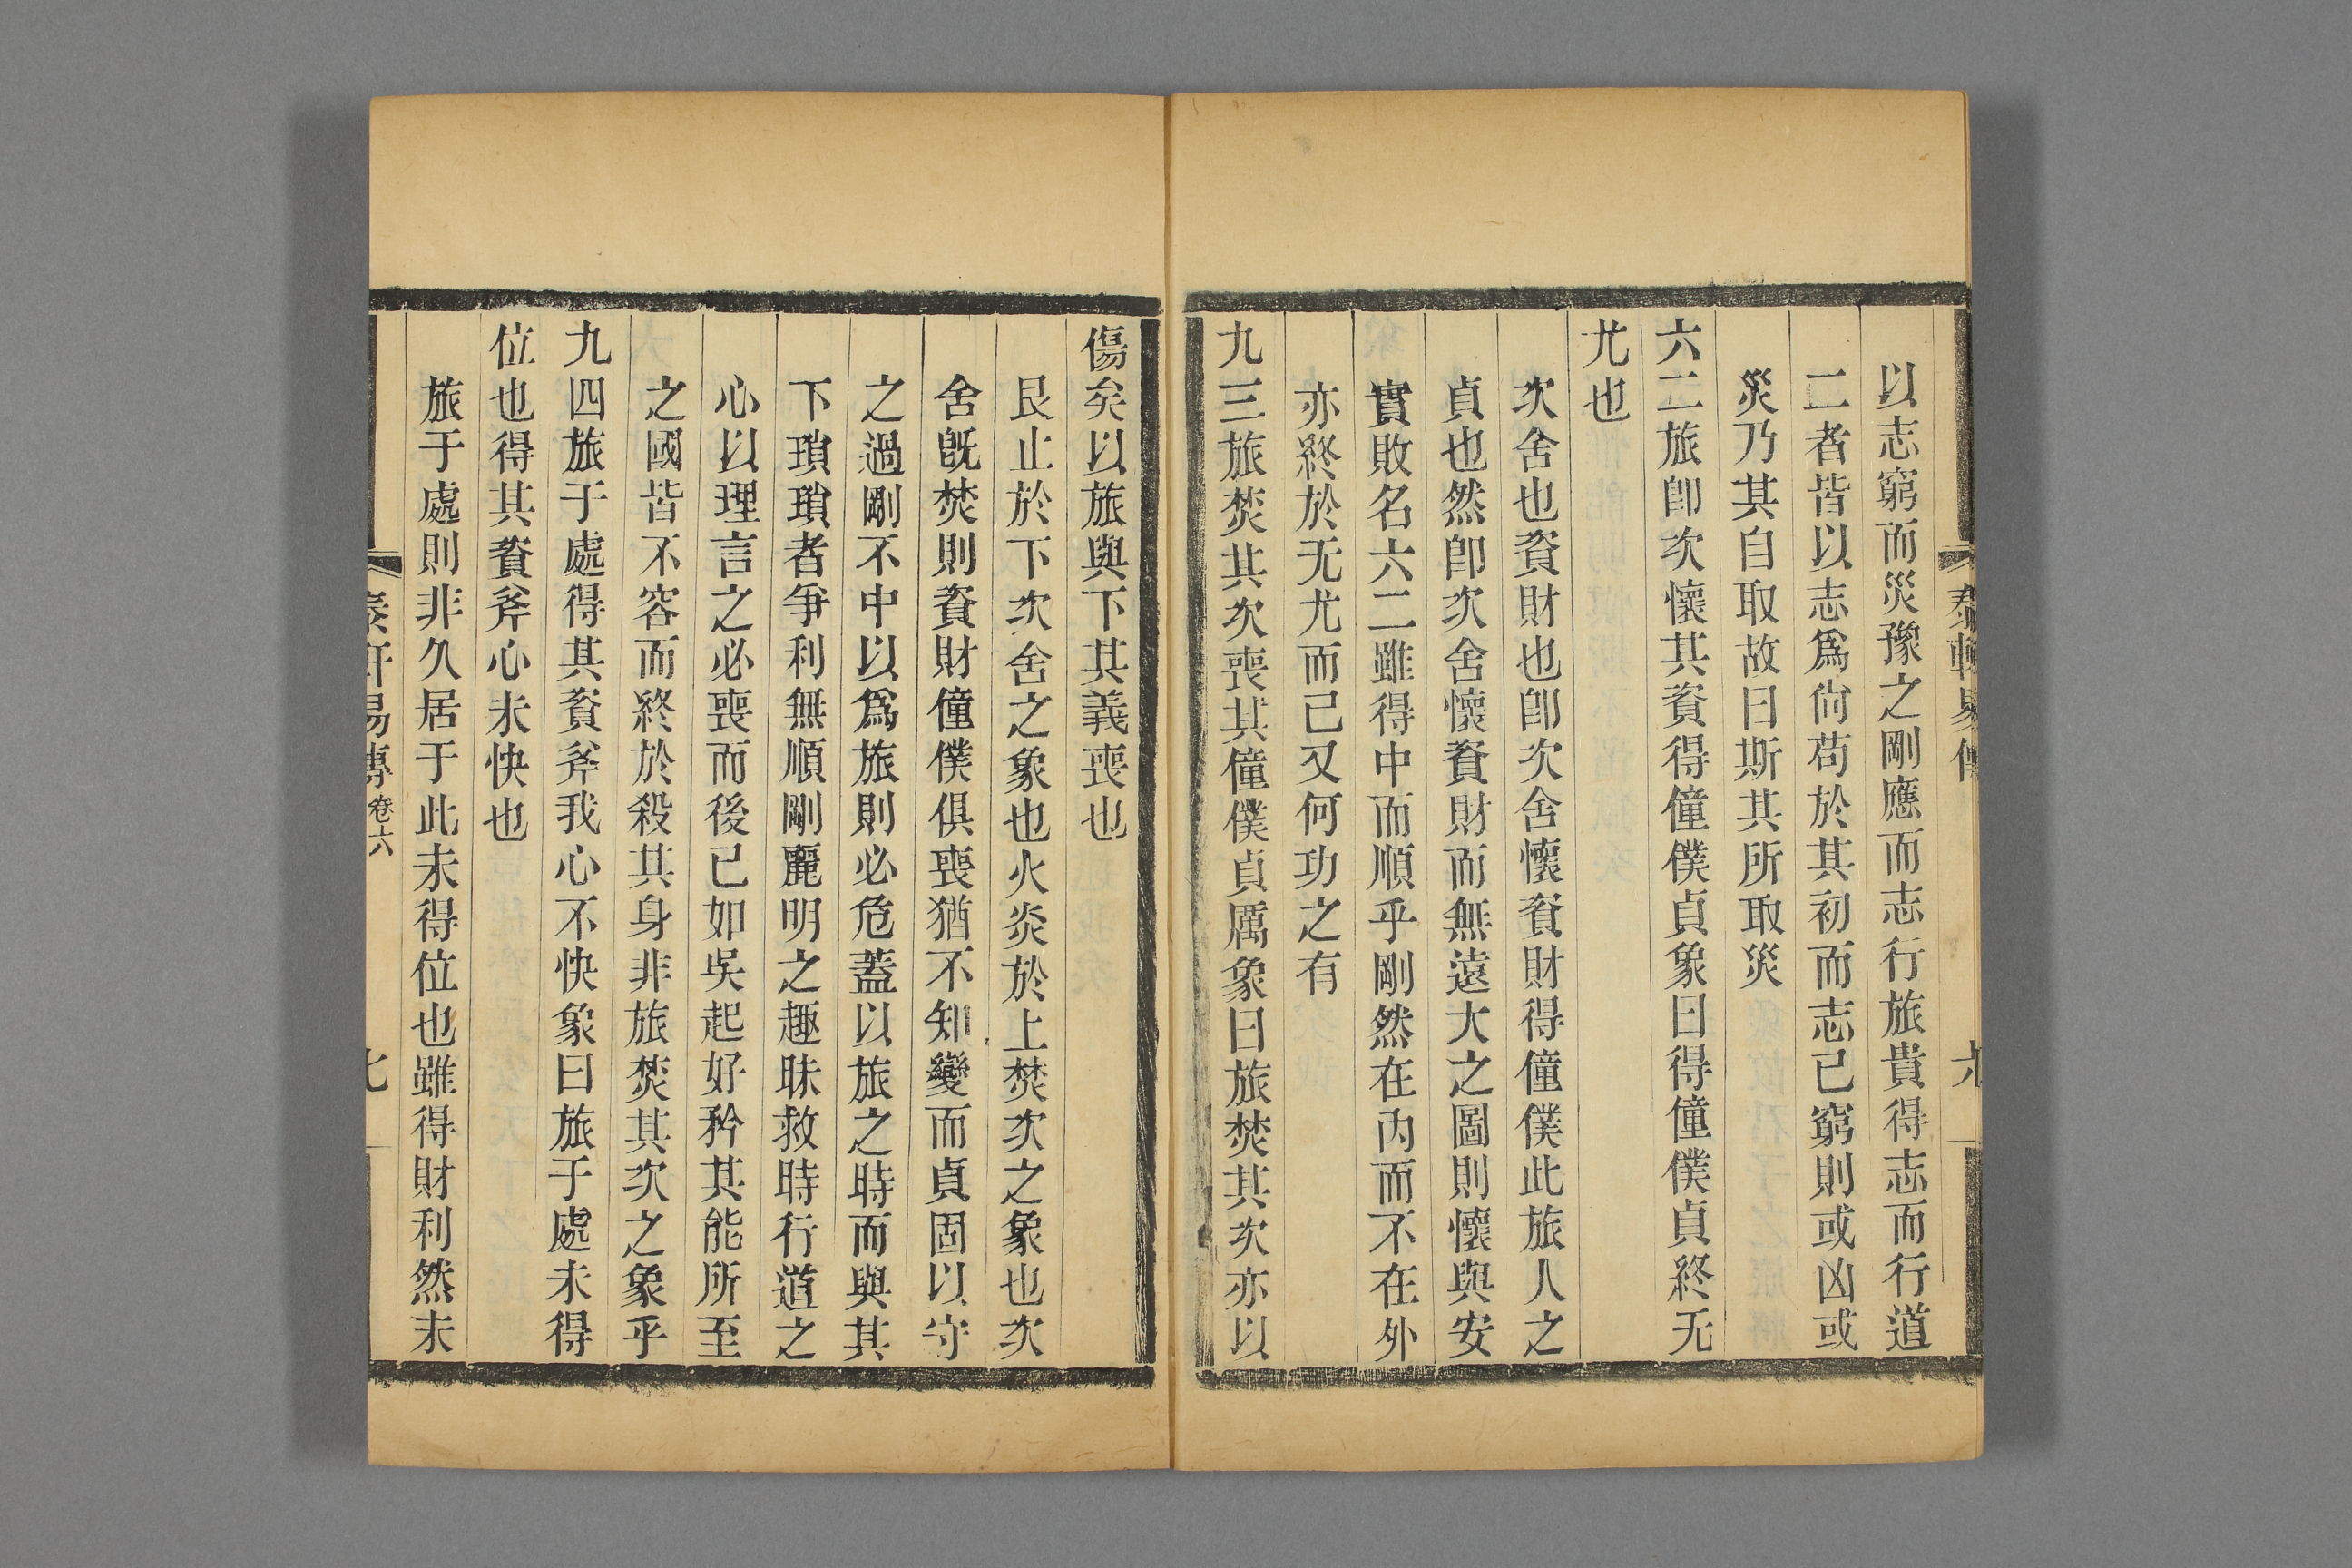 以志窮而災豫之剛應而志行旅貴得志而行道
二者皆以志爲尙苟於其初而志已窮則或凶或
災乃其自取故曰斯其所取災
六二旅卽次懷其資得僮僕貞象曰得僮僕貞終无
尤也
次舍也資財也卽次舍懷資財得僮僕此旅人之
貞也然卽次舍懷資財而無遠大之圖則懷與安
實敗名六二雖得中而順乎剛然在內而不在外
亦終於无尤而已又何功之有
九三旅焚其次喪其僮僕貞厲象曰旅焚其次亦以
傷矣以旅與下其義喪也
艮止於下次舍之象也火炎於上焚次之象也次
舍旣焚則資財僮僕俱喪猶不知變而貞固以守
之過剛不中以爲旅則必危蓋以旅之時而與其
下瑣瑣者爭利無順剛麗明之趣昧救時行道之
心以理言之必喪而後已如吳起好矜其能所至
之國皆不容而終於殺其身非旅焚其次之象乎
九四旅于處得其資斧我心不快象曰旅于處未得
位也得其資斧心未快也
旅于處則非久居于此未得位也雖得財利然未
易傳 卷六